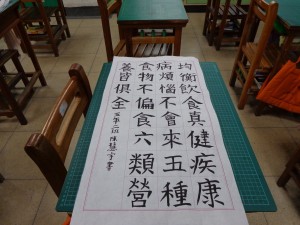 均衡飲食真健疾康
病煩惱不會來五種
食物不偏食六類營
養皆俱全